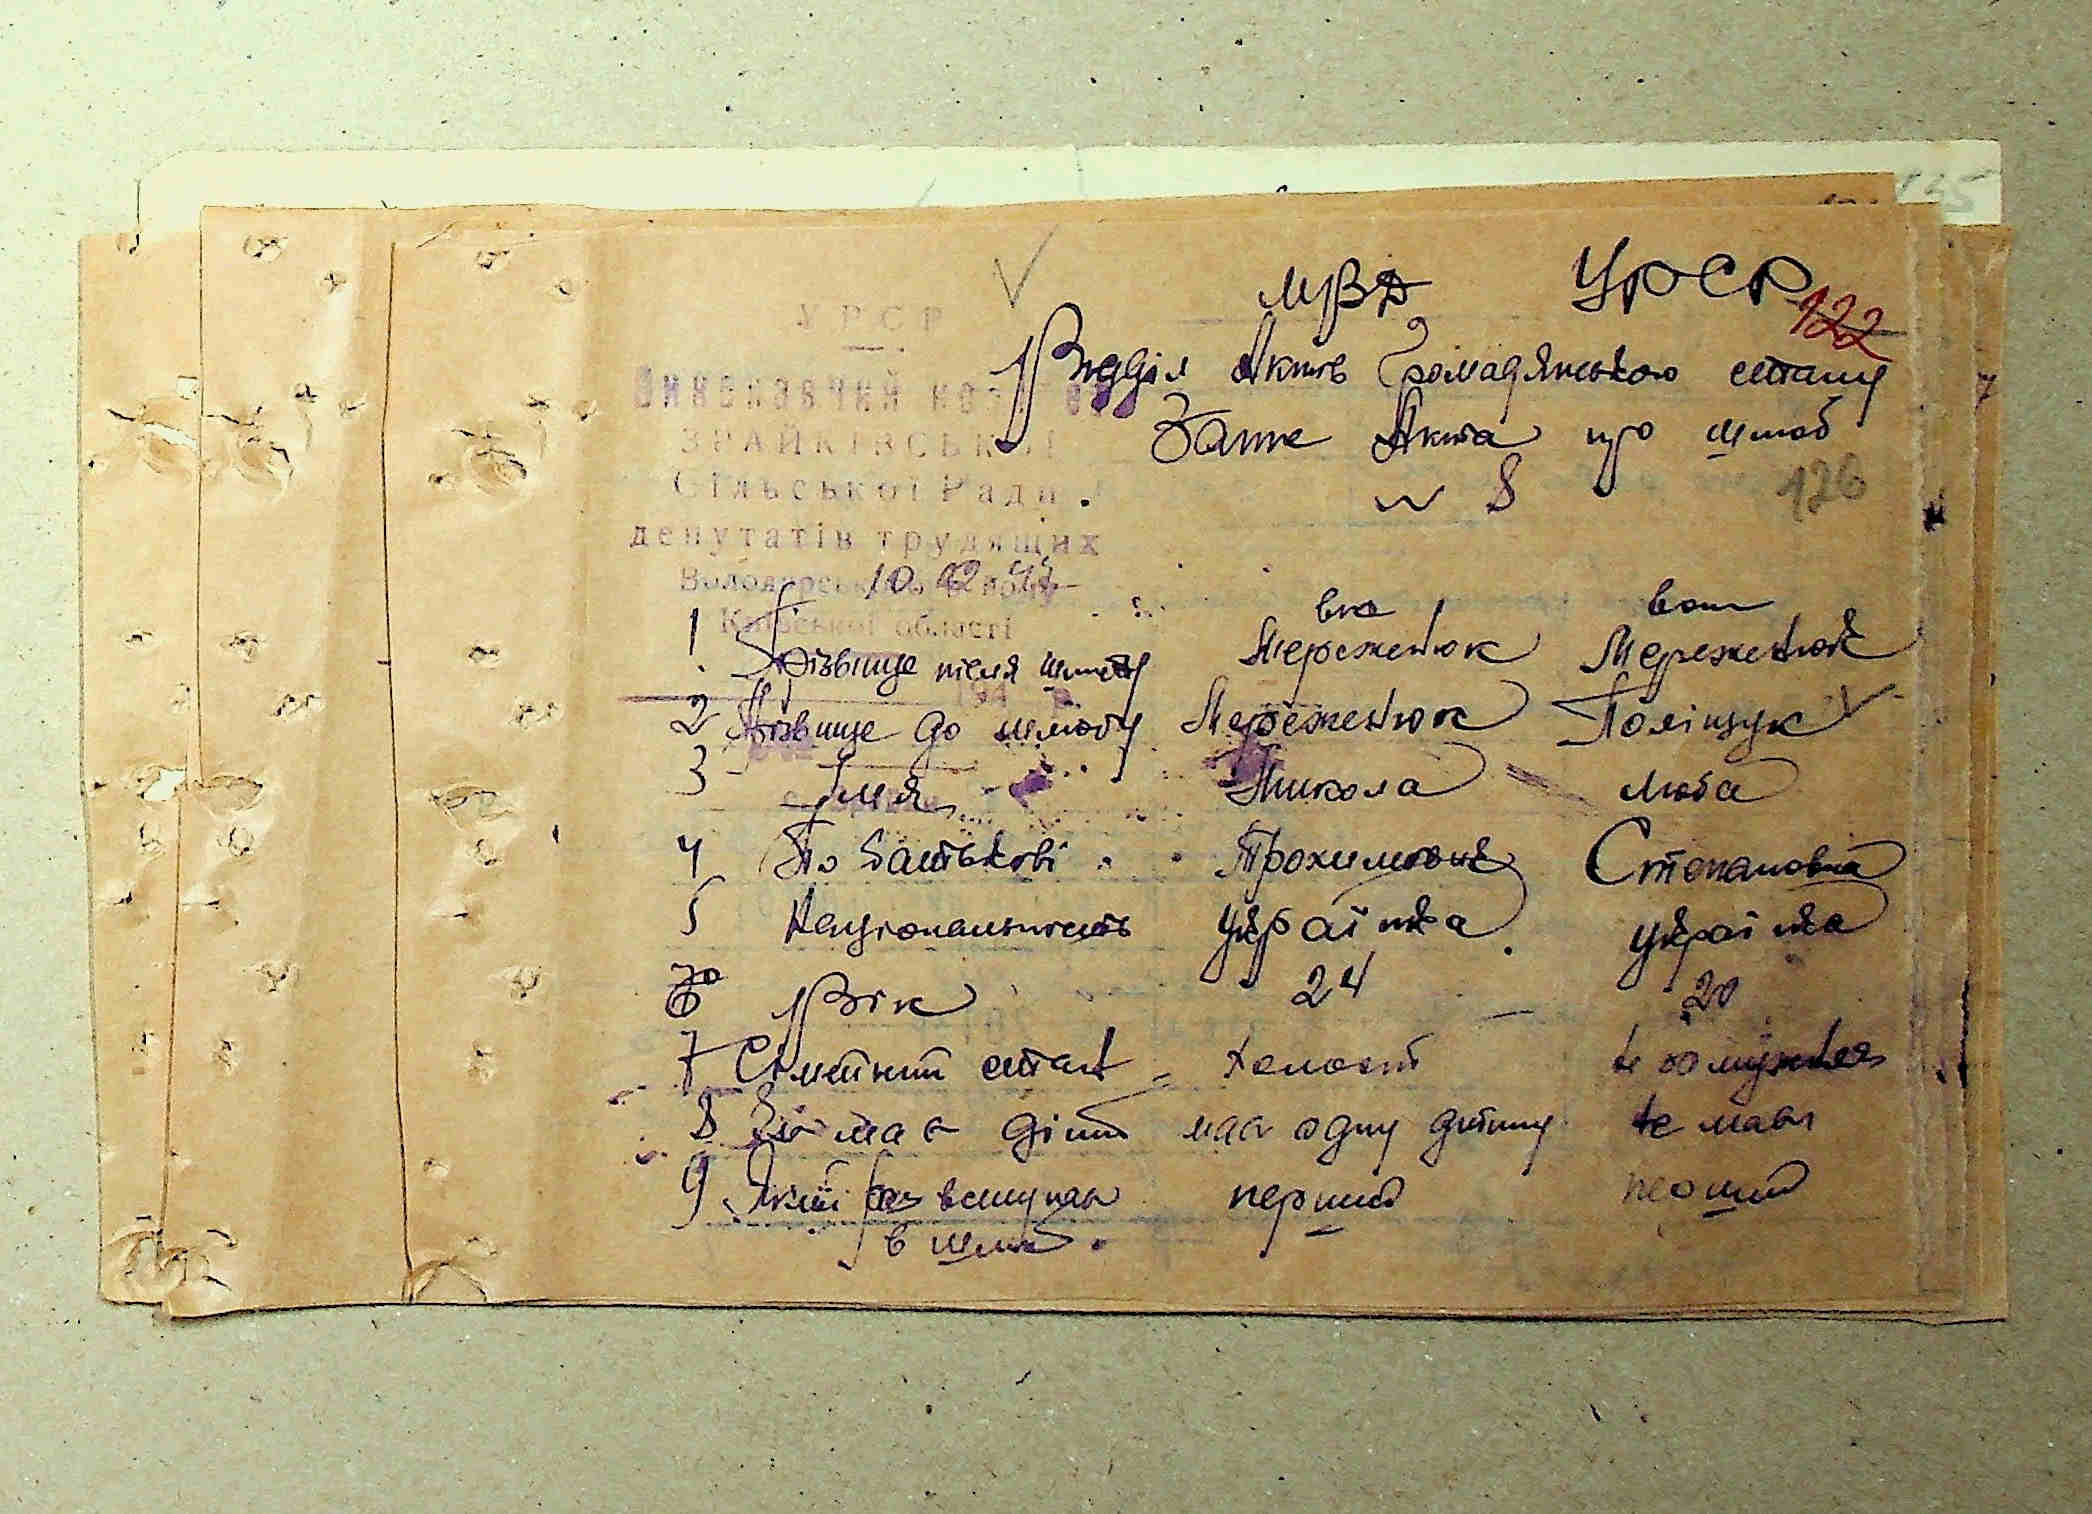 УРСР
Виконавчий комітет
ЗРАЙКІВСЬКОЇ
Сільської Ради
депутатів трудящих
Володарського
Київської області
194
МВД УРСР
122
Відділ Актів Громадянського стану
Запис Акта про шлюб
№ 8
126
10 02
він вона
1 Прізвище після шлюбу Мереженюк Мереженюк
2 Прізвище до шлюбу Мереженюк Поліщук
3 Імя Микола Люба
4 По батькові Трохимович Степановна
5 Національность Українка Українка
6 Вік 24 20
7 Сімейний стан холост не замужняя
8 має дітей має одну дитину не має
9 Який раз вступає перший перший
в шлюб.